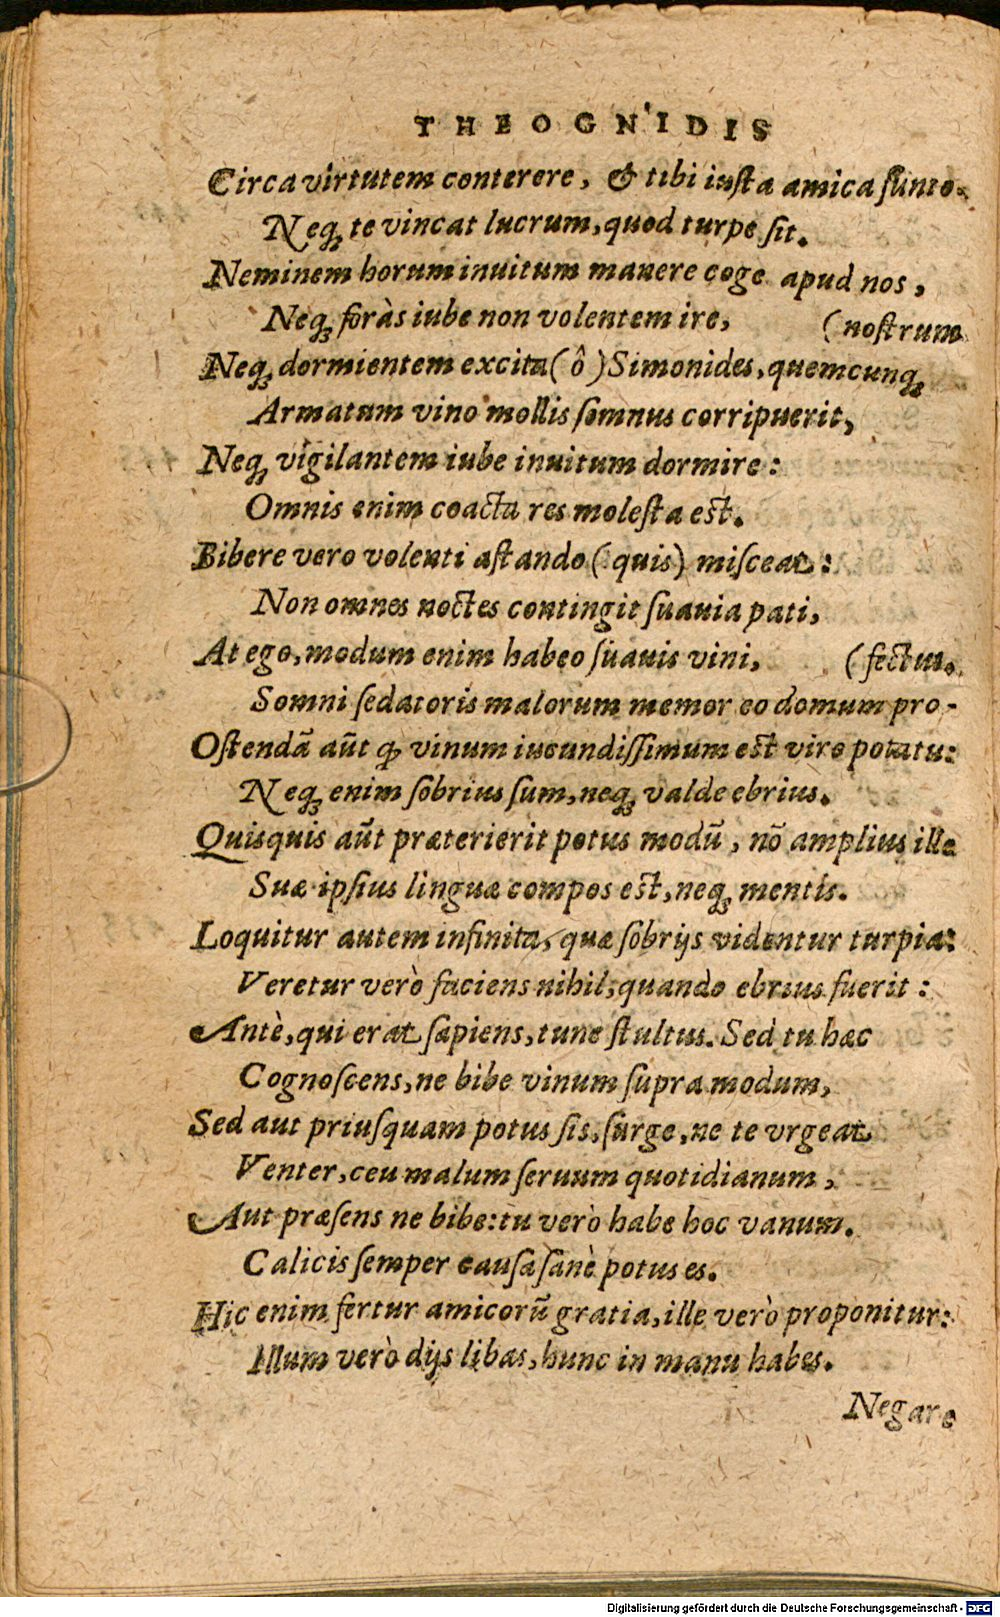 THEOGNIDIS
Circa virtutem conterere, & tibi iusta amica sunto.
Neq; te vincat lucrum, quod turpe sit.
Neminem horum inuitum manere coge apud nos,
Neq; foràs iube non volentem ire, (nostrum
Neq; dormientem excita (ô) Simonides, quemcunq;
Armatum vino mollis somnus corripuerit,
Neq; vigilantem iube inuitum dormire:
Omnis enim coacta res molesta est.
Bibere vero volenti astando (quis) misceat:
Non omnes noctes contingit suauia pati,
At ego, modum enim habeo suauis vini, (fectus.
Somni sedatoris malorum memor eo domum pro-
Ostendã aũt ꝙ vinum iucundissimum est viro potatu:
Neq; enim sobrius sum, neq; valde ebrius.
Quisquis aũt præterierit potus modũ, nõ amplius ille
Suæ ipsius linguæ compos est, neq; mentis.
Loquitur autem infinita, quæ sobrijs videntur turpia:
Veretur verò faciens nihil, quando ebrius fuerit:
Antè, qui erat sapiens, tunc stultus. Sed tu hæc
Cognoscens, ne bibe vinum supra modum,
Sed aut priusquam potus sis, surge, ne te vrgeat
Venter, ceu malum seruum quotidianum,
Aut præsens ne bibe: tu verò habe hoc vanum.
Calicis semper causa sanè potus es.
Hic enim fertur amicorũ gratia, ille verò proponitur:
Illum verò dijs libas, hunc in manu habes.
Negare
Digitalisierung gefördert durch die Deutsche Forschungsgemeinschaft - DFG